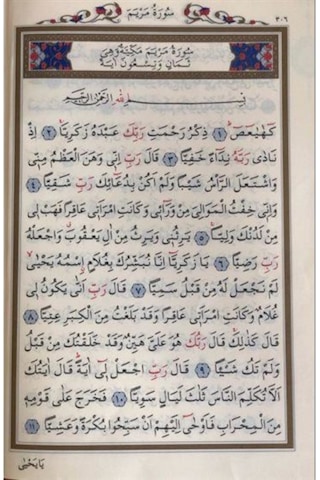 سُورَةُ مَرْيَمَ
٣٠٦
سُورَةُ مَرْيَمَ مَكِّيَّةٌ وَهِيَ
ثَمَانٍ وَتِسْعُونَ اٰيَةً
بِسْمِ اللهِ الرَّحْمٰنِ الرَّحِيمِ
كٓهٰيٰعٓصٓ ﴿١﴾ ذِكْرُ رَحْمَتِ رَبِّكَ عَبْدَهُ زَكَرِيَّا ﴿٢﴾ اِذْ
نَادٰى رَبَّهُ نِدَٓاءً خَفِيًّا ﴿٣﴾ قَالَ رَبِّ اِنّٖى وَهَنَ الْعَظْمُ مِنّٖى
وَاشْتَعَلَ الرَّأْسُ شَيْبًا وَلَمْ اَكُنْ بِدُعَٓائِكَ رَبِّ شَقِيًّا ﴿٤﴾
وَاِنّٖى خِفْتُ الْمَوَالِىَ مِنْ وَرَٓائٖى وَكَانَتِ امْرَاَتٖى عَاقِرًا فَهَبْ لٖى
مِنْ لَدُنْكَ وَلِيًّا ﴿٥﴾ يَرِثُنٖى وَيَرِثُ مِنْ اٰلِ يَعْقُوبَ وَاجْعَلْهُ
رَبِّ رَضِيًّا ﴿٦﴾ يَا زَكَرِيَّٓا اِنَّا نُبَشِّرُكَ بِغُلَامٍ اسْمُهُ يَحْيٰى
لَمْ نَجْعَلْ لَهُ مِنْ قَبْلُ سَمِيًّا ﴿٧﴾ قَالَ رَبِّ اَنّٰى يَكُونُ لٖى
غُلَامٌ وَكَانَتِ امْرَاَتٖى عَاقِرًا وَقَدْ بَلَغْتُ مِنَ الْكِبَرِ عِتِيًّا ﴿٨﴾
قَالَ كَذٰلِكَ قَالَ رَبُّكَ هُوَ عَلَىَّ هَيِّنٌ وَقَدْ خَلَقْتُكَ مِنْ قَبْلُ
وَلَمْ تَكُ شَيْئًا ﴿٩﴾ قَالَ رَبِّ اجْعَلْ لٖٓى اٰيَةً قَالَ اٰيَتُكَ
اَلَّا تُكَلِّمَ النَّاسَ ثَلٰثَ لَيَالٍ سَوِيًّا ﴿١٠﴾ فَخَرَجَ عَلٰى قَوْمِهٖ
مِنَ الْمِحْرَابِ فَاَوْحٰٓى اِلَيْهِمْ اَنْ سَبِّحُوا بُكْرَةً وَعَشِيًّا ﴿١١﴾
يَا يَحْيٰى